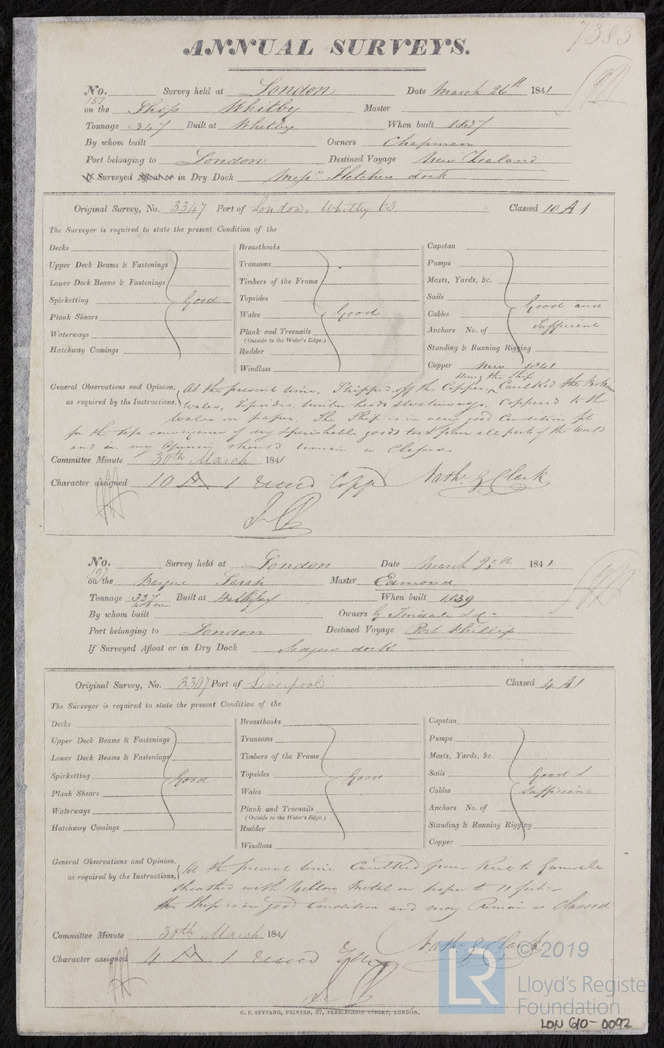 7383
ANNUAL SURVEYS.
No. Survey held at London Date March 26th 1841
157
on the Ship Whitby Master
Tonnage 347 Built at Whitby When built 1837
By whom built Owners Chapman
Port belonging to London Destined Voyage New Zealand
If Surveyed Afloat or in Dry Dock Messrs Fletchers dock
Original Survey, No. 3347 Port of London, Whitby 63 Classed 10 A 1
The Surveyor is required to state the present Condition of the
Decks Breasthooks Capstan
Upper Deck Beams & Fastenings Transoms Pumps
Lower Deck Beams & Fastenings Timbers of the Frame Masts, Yards, &c.
Spirketting Good Topsides Sails Good and
Plank Shears Wales Good Cables Sufficient
Waterways Plank and Treenails Anchors No. of
(Outside to the Water's Edge.)
Hatchway Comings Rudder Standing & Running Rigging
Windlass Copper New 1841
General Observations and Opinion, At the present time. Stripped off the Copper, Caulked the
as required by the Instructions, Wales, Topsides, timber heads Waterways, Coppered to the
Wales on paper. The Ship is in very good Condition fit
for the safe conveyance of dry & perishable goods to & from all parts of the World
and in my Opinion should remain as Classed
Committee Minute 30th March 1841
Character assigned 10 A 1 Copp Nath. G Clark
No. Survey held at London Date March 1841
197
on the Barque Sarah Master Edmond
Tonnage 337 Built at When built 1839
By whom built Owners
Port belonging to London Destined Voyage Port Phillip
If Surveyed Afloat or in Dry Dock dock
Original Survey, No. 3307 Port of Liverpool Classed 4 A 1
The Surveyor is required to state the present Condition of the
Decks Breasthooks Capstan
Upper Deck Beams & Fastenings Transoms Pumps
Lower Deck Beams & Fastenings Timbers of the Frame Masts, Yards, &c.
Spirketting Good Topsides Good Sails Good &
Plank Shears Wales Cables Sufficient
Waterways Plank and Treenails Anchors No. of
(Outside to the Water's Edge.)
Hatchway Comings Rudder Standing & Running Rigging
Windlass Copper
General Observations and Opinion, At the present time Caulked from Keel to Gunwale
as required by the Instructions, Sheathed with Yellow Metal on paper to 11 feet
the Ship is in good Condition and may Remain as Classed
Committee Minute 30th March 1841
Character assigned 4 A 1 Nath. G Clark
C. F. SEYFANG, PRINTER, 57, FARRINGDON STREET, LONDON.
LR
© 2019
Lloyd's Register
Foundation
LDN G10-0092